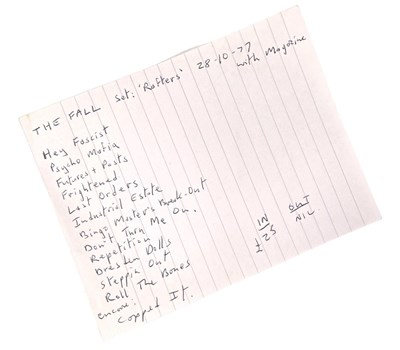 THE FALL Set: 'Rafters' 28-10-77
with Magazine
Hey Fascist
Psycho Mafia
Futures + Pasts
Frightened
Last Orders
Industrial Estate
Bingo Master's Break-Out
Don't Turn Me On.
Repetition
Dresden Dolls
Steppin Out
Roll The Bones
encore: Copped It.
IN OUT
£25 NIL